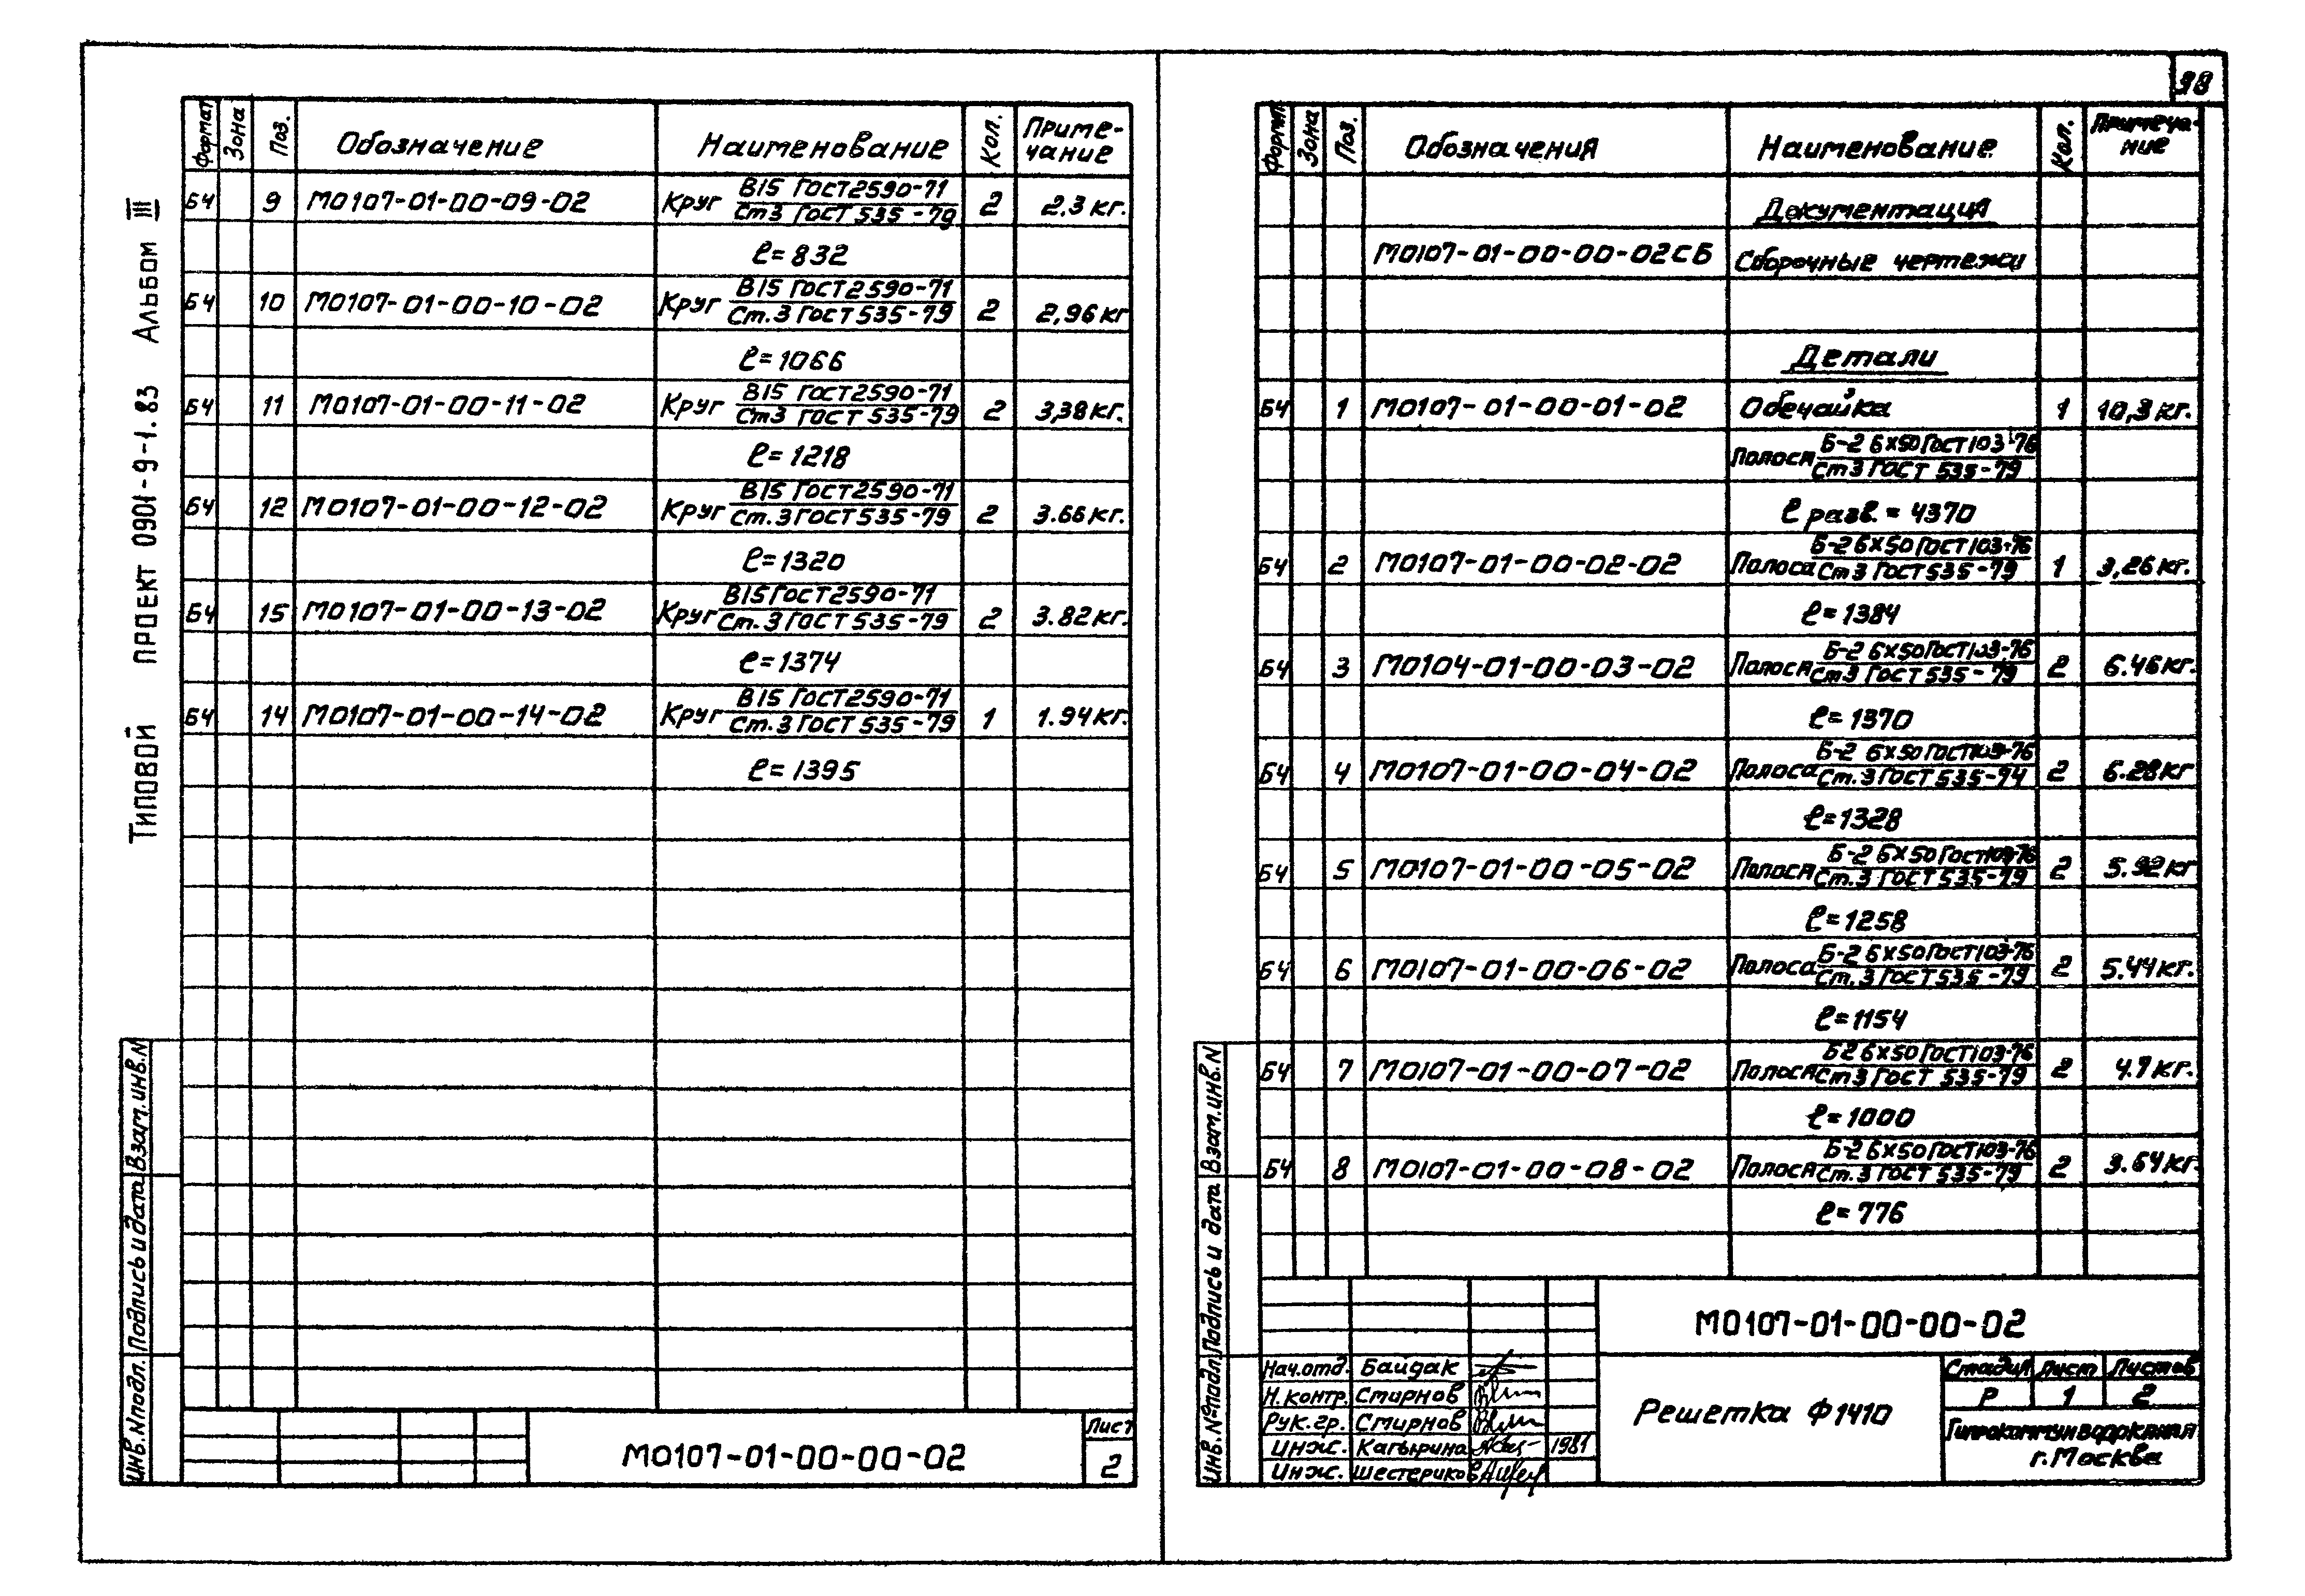 98
Типовой проект 0901-9-1.83 Альбом III
Формат Зона Поз. Обозначение Наименование Кол. Приме-
чание
Б4 9 М0107-01-00-09-02 Круг В15 ГОСТ2590-71 2 2,3 кг.
Ст3 ГОСТ 535-79
ℓ=832
Б4 10 М0107-01-00-10-02 Круг В15 ГОСТ2590-71 2 2,96кг
Ст.3 ГОСТ 535-79
ℓ=1066
Б4 11 М0107-01-00-11-02 Круг В15 ГОСТ2590-71 2 3,38кг.
Ст3 ГОСТ 535-79
ℓ=1218
Б4 12 М0107-01-00-12-02 Круг В15 ГОСТ2590-71 2 3.66кг.
Ст.3 ГОСТ 535-79
ℓ=1320
Б4 15 М0107-01-00-13-02 Круг В15 ГОСТ2590-71 2 3.82кг.
Ст.3 ГОСТ 535-79
ℓ=1374
Б4 14 М0107-01-00-14-02 Круг В15 ГОСТ2590-71 1 1.94кг.
Ст.3 ГОСТ 535-79
ℓ=1395
Инв.Nподл. Подпись и дата Взам.инв.N
М0107-01-00-00-02
Лист
2
Формат Зона Поз. Обозначения Наименование Кол. Примеча-
ние
Документация
М0107-01-00-00-02СБ Сборочные чертежи
Детали
Б4 1 М0107-01-00-01-02 Обечайка 1 10,3 кг.
Полоса Б-2 6х50 ГОСТ103-76
Ст3 ГОСТ 535-79
ℓ разв. = 4370
Б4 2 М0107-01-00-02-02 Полоса Б-2 6х50 ГОСТ103-76 1 3,26кг.
Ст3 ГОСТ 535-79
ℓ=1384
Б4 3 М0104-01-00-03-02 Полоса Б-2 6х50 ГОСТ103-76 2 6.46кг.
Ст3 ГОСТ 535-79
ℓ=1370
Б4 4 М0107-01-00-04-02 Полоса Б-2 6х50 ГОСТ103-76 2 6.28кг
Ст.3 ГОСТ 535-74
ℓ=1328
Б4 5 М0107-01-00-05-02 Полоса Б-2 6х50 ГОСТ103-76 2 5.92кг
Ст.3 ГОСТ 535-79
ℓ=1258
Б4 6 М0107-01-00-06-02 Полоса Б-2 6х50 ГОСТ103-76 2 5.44кг.
Ст.3 ГОСТ 535-79
ℓ=1154
Б4 7 М0107-01-00-07-02 Полоса Б2 6х50 ГОСТ103-76 2 4.7 кг.
Ст3 ГОСТ 535-79
ℓ=1000
Б4 8 М0107-01-00-08-02 Полоса Б-2 6х50 ГОСТ103-76 2 3.64кг.
Ст.3 ГОСТ 535-79
ℓ=776
Инв.Nºподл. Подпись и дата Взам.инв.N
М0107-01-00-00-02
Нач.отд. Байдак
Н.контр. Смирнов
Рук.гр. Смирнов
Инж. Кагырина 1981
Инж. Шестериков
Решетка Ф1410
Стадия Лист Листов
Р 1 2
Гипрокоммунводоканал
г.Москва